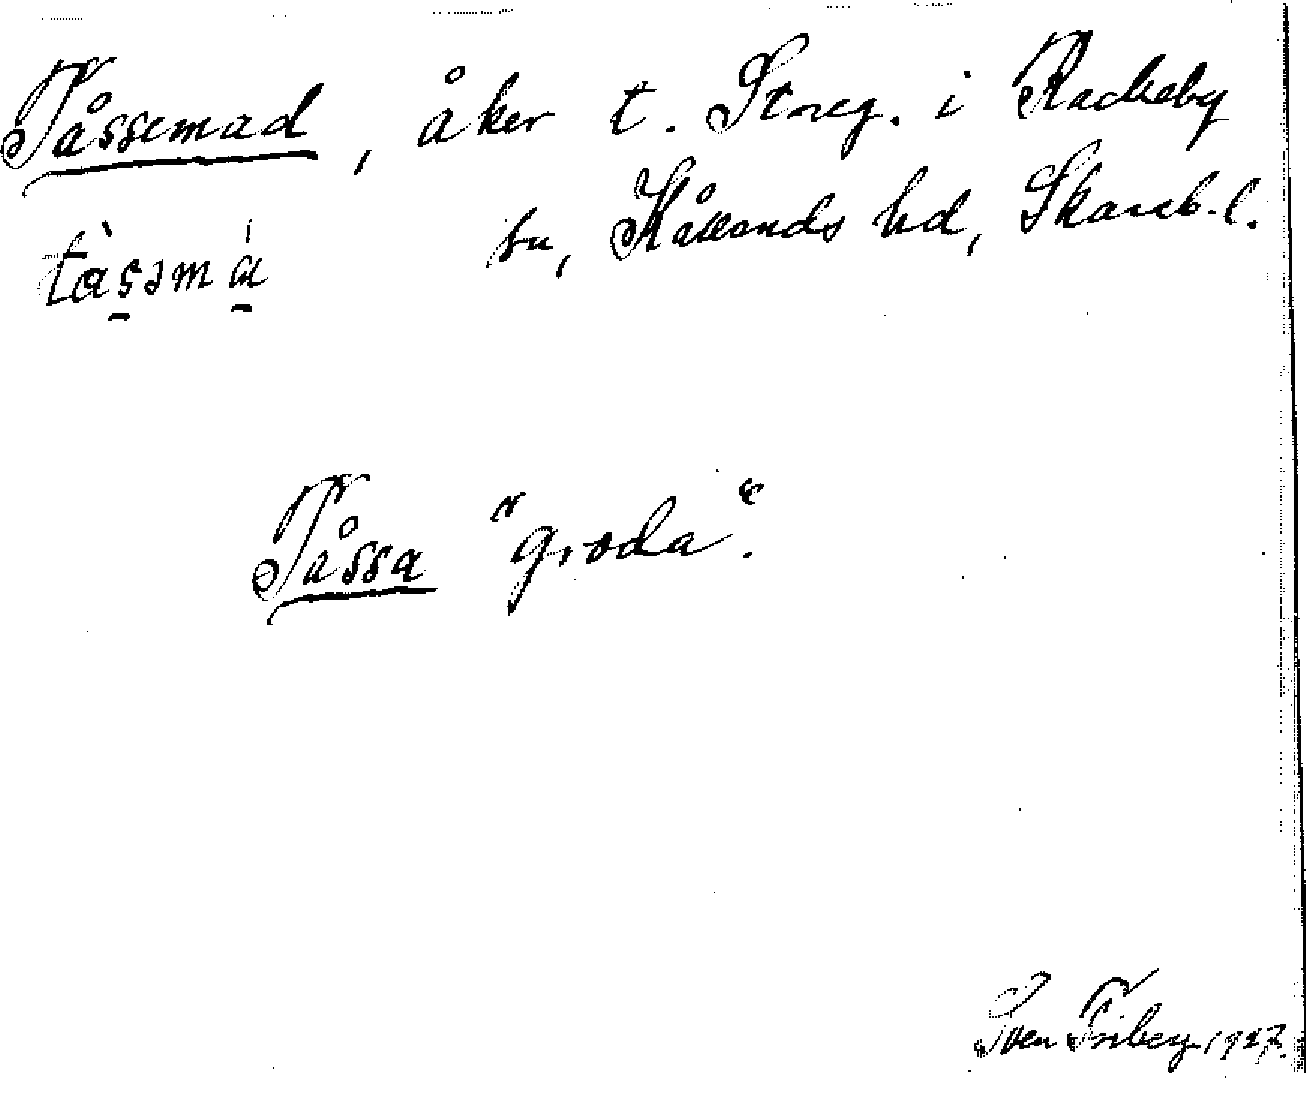 Tåssemad, åker t. Storeg. i Rackeby
sn, Kållands hd, Skarab. l.
Tåssa "groda".
Sven Friberg 1927.